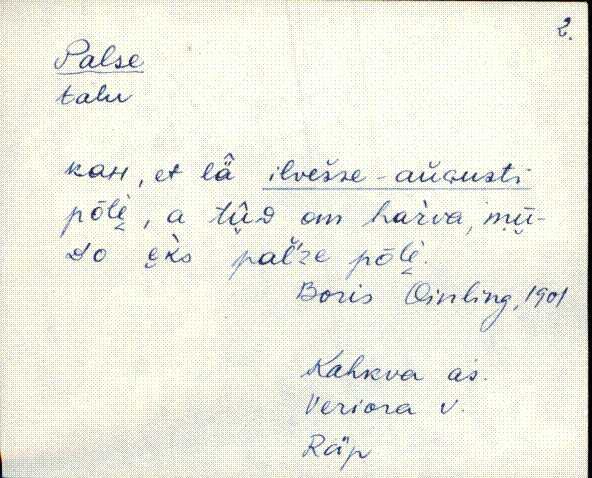 2.
Palse
talu
кан, et lä̂ ilvešse-aùgusti
põlè̬, a tû̬D om har̀va, mū̬-
Do e̬k̀s pal̀'ze põlè̬.
Boris Oinling, 1901
Kahkva as.
Veriora v.
Räp